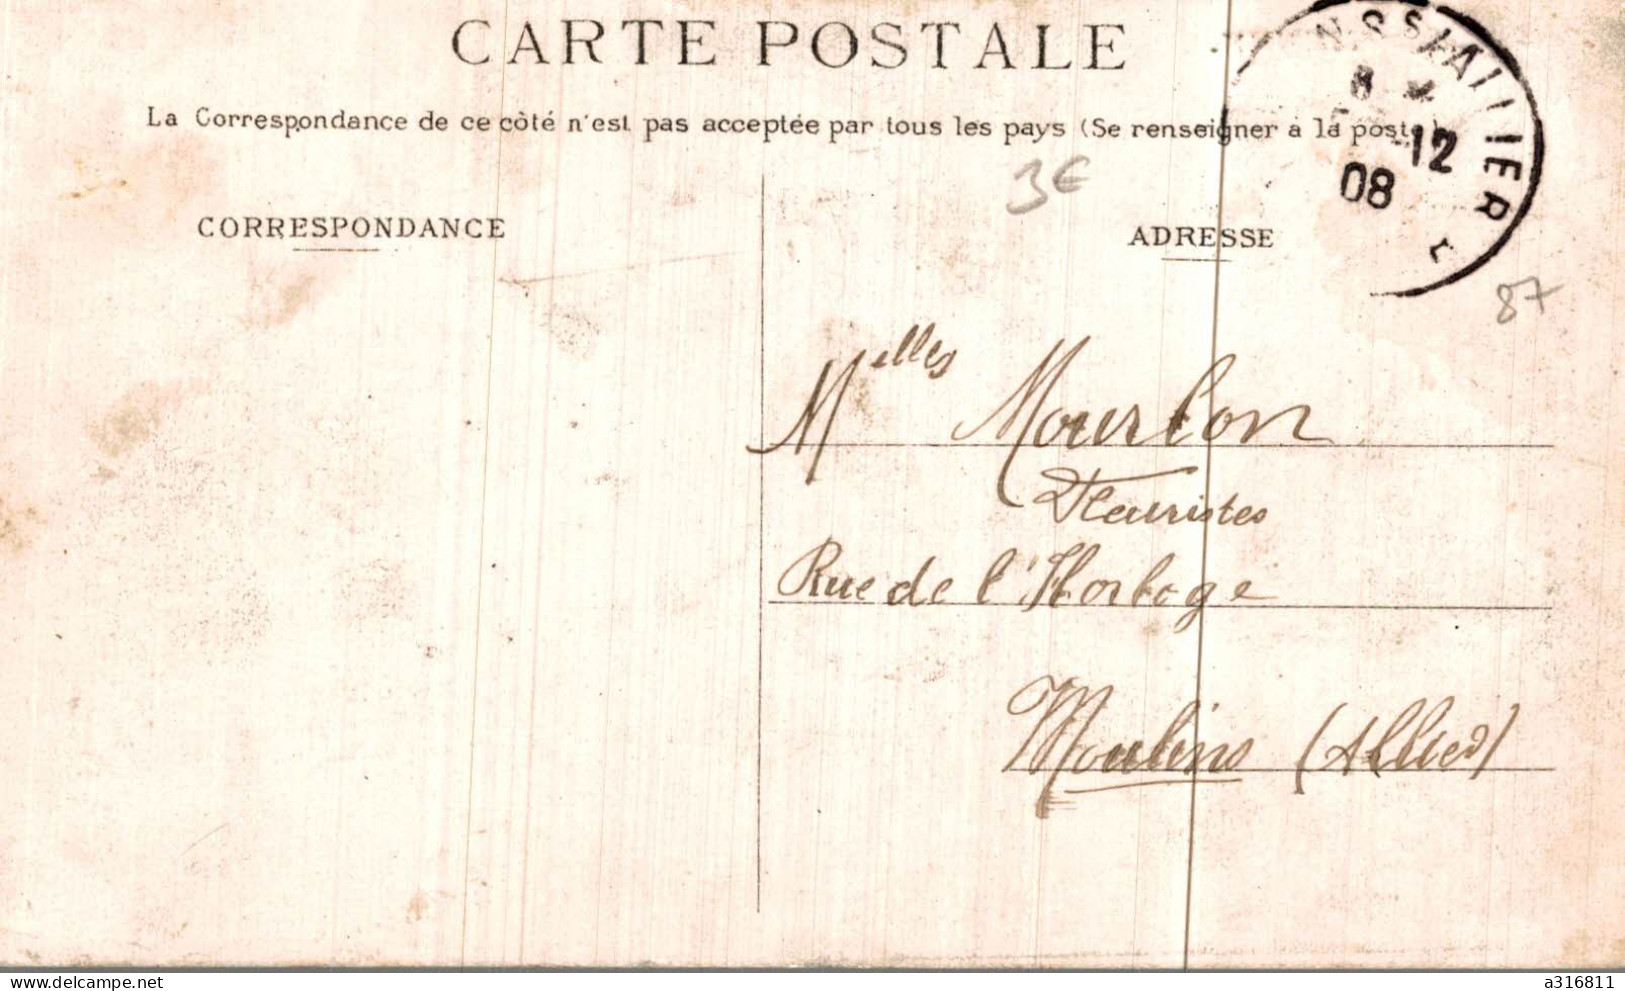 CARTE POSTALE
La Correspondance de ce côté n'est pas acceptée par tous les pays (Se renseigner à la poste)
3€
CORRESPONDANCE
ADRESSE
8
12
08
ALLIER
87
Melles Mourlon
Fleuristes
Rue de l'Horloge
Moulins (Allier)
a316811